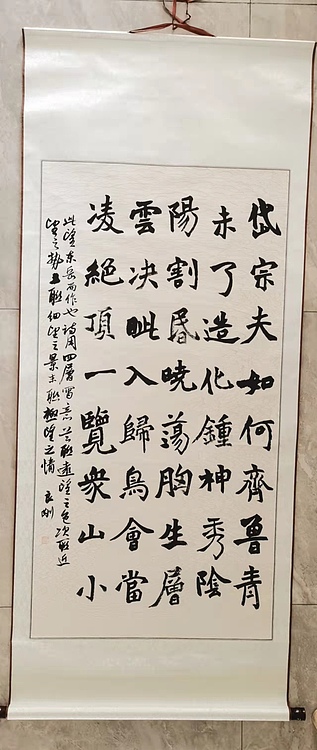 岱宗夫如何齊魯青
未了造化鍾神秀陰
陽割昏暁蕩胸生層
雲决眦入歸鳥會當
凌絕頂一覽衆山小
此望东岳而作也詩用四層寫意首聯遠望之色次联近
望之势三联细望之景末联極望之情